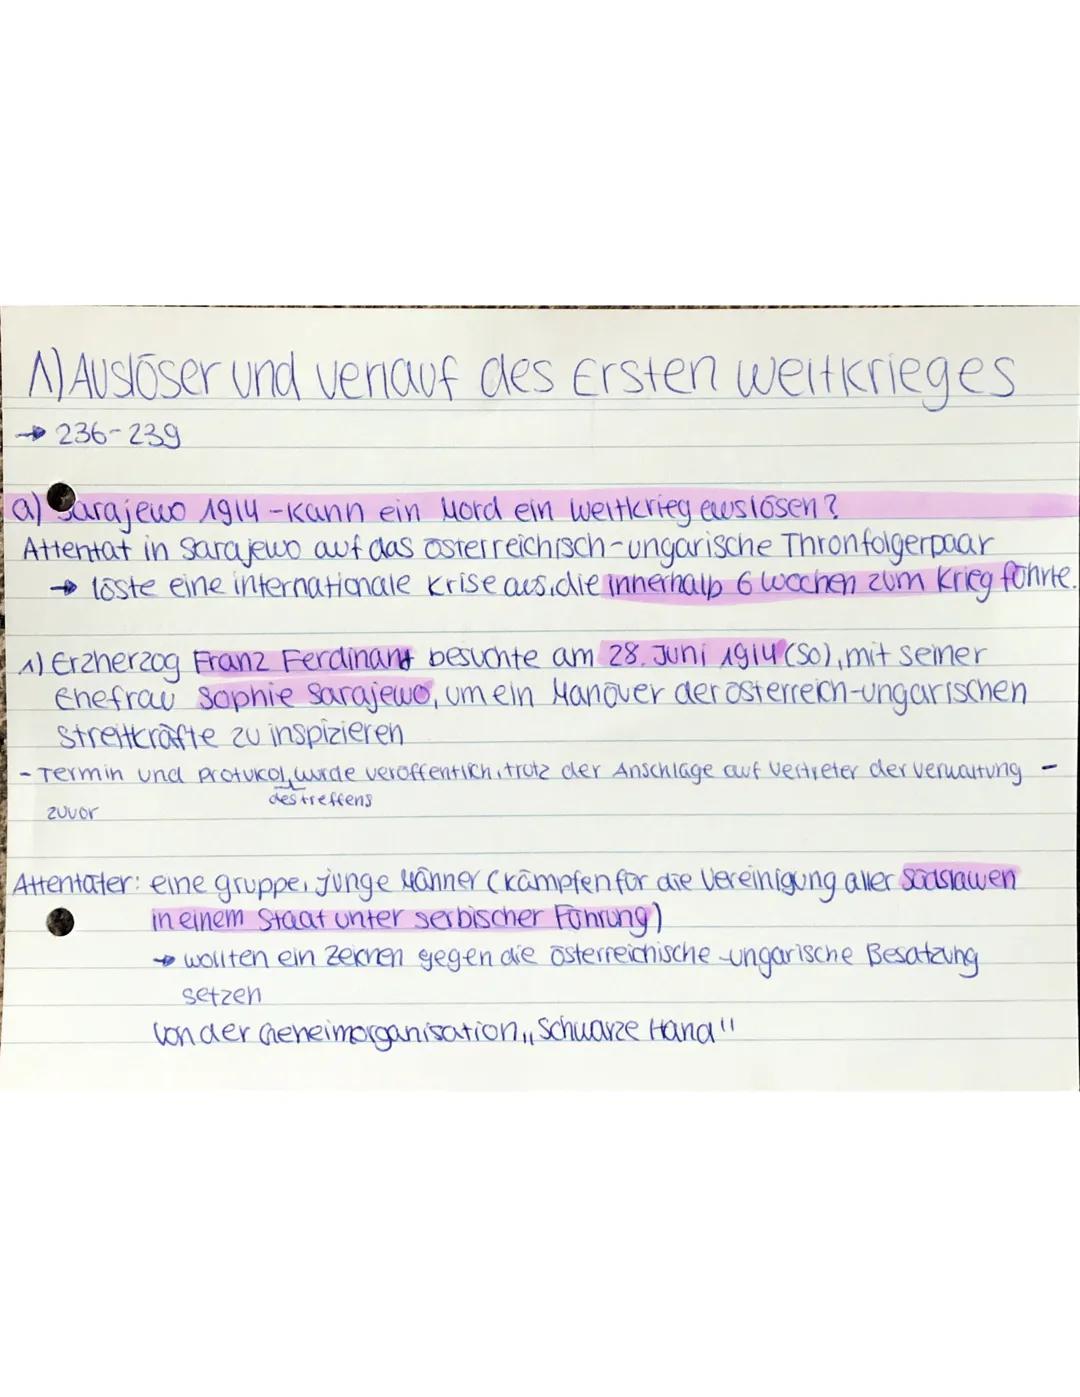 1) Auslöser und Verlauf des Ersten Weltkrieges
→ 236-239
a) Sarajewo 1914 - Kann ein Mord ein Weltkrieg auslösen?
Attentat in Sarajewo auf das österreichisch-ungarische Thronfolgerpaar
→ löste eine internationale Krise aus, die innerhalb 6 Wochen zum Krieg führte.
1) Erzherzog Franz Ferdinant besuchte am 28. Juni 1914 (So), mit seiner
Ehefrau Sophie Sarajewo, um ein Manöver der österreich-ungarischen
Streitkräfte zu inspizieren
- Termin und Protukol wurde veröffentlich, trotz der Anschläge auf Vertreter der Verwaltung -
des treffens
zuvor
Attentäter: eine gruppe, junge Männer (kämpfen für die Vereinigung aller Südslawen
in einem Staat unter serbischer Führung)
→ wollten ein Zeichen gegen die österreichische-ungarische Besatzung
setzen
Von der Geheimorganisation „Schwarze Hand"